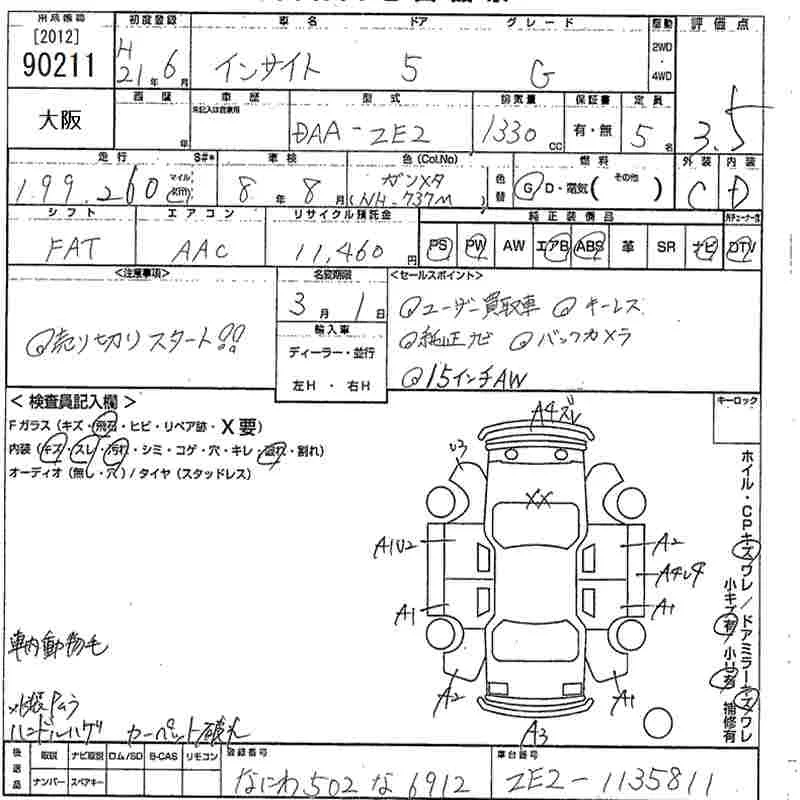 出品番号 初度登録 車名 ドア グレード 駆動 評価点
[2012]
90211
H 21年 6月 インサイト 5 G 2WD・4WD 3.5
大阪
西暦 年 車歴 未記入は自家用 型式 排気量 保証書 定員
DAA-ZE2 1330 CC 有・無 5名
走行 S#* 車検 色(Col.No) 燃料 外装 内装
199.260 マイル Km 8年 8月 ガンメタ (NH-737M) 色替 G D・電気( その他 ) C D
シフト エアコン リサイクル預託金 純正装備品
FAT AAC 11,460円 PS PW AW エアB ABS 革 SR ナビ DTV
<注意事項> 名変期限 <セールスポイント>
売り切りスタート!! 3月 1日
ユーザー買取車 キーレス
純正ナビ バックカメラ
15インチAW
輸入車
ディーラー・並行
左H・右H
<検査員記入欄> キーロック
Fガラス(キズ・飛石・ヒビ・リペア跡・X要)
内装(キズ・スレ・汚れ・シミ・コゲ・穴・キレ・破れ・割れ)
オーディオ(無し・穴)/タイヤ(スタッドレス)
A4ズレ
U3
XX
A1U2 A2
A4U4
A1 A1
A2 A1
A3
ホイル・CPキズワレ/ドアミラーキズワレ
小キズ有/小U有 補修有
車内動物毛
ハンドルハゲ カーペット破れ
後送品 取説 ナビ取説 ロム/SD B-CAS リモコン 登録番号 車台番号
ナンバー スペアキー なにわ502な6912 ZE2-1135811